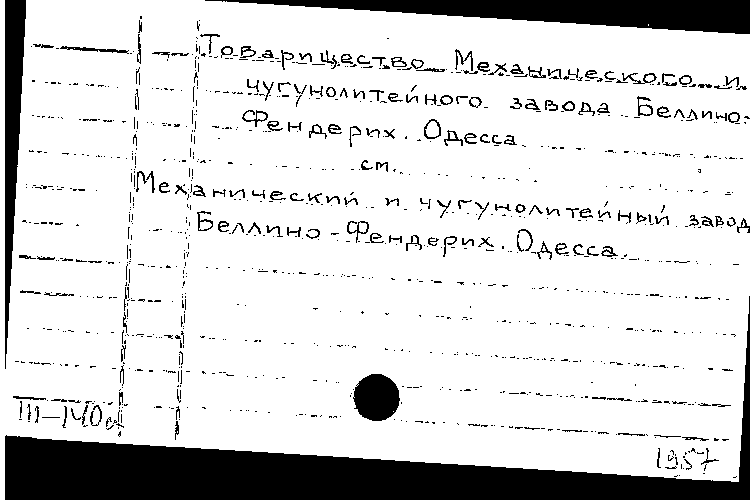 Товарищество Механического и
чугунолитейного завода Беллино-
Фендерих. Одесса
см.
Механический и чугунолитейный завод
Беллино-Фендерих. Одесса.
1957